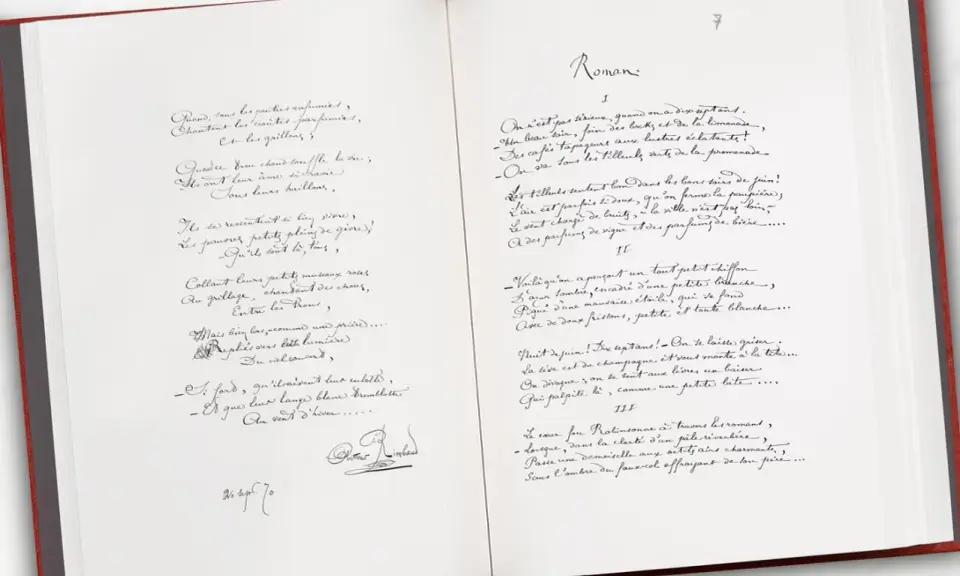 Quand, sous les poutres enfumées,
Chantent les croûtes parfumées,
Et les grillons;
Quand ce trou chaud souffle la vie;
Ils ont leur âme si ravie
Sous leurs haillons,
Ils se ressentent si bien vivre,
Les pauvres petits pleins de givre,
- Qu'ils sont là, tous,
Collant leurs petits museaux roses
Au grillage, chantant des choses,
Entre les trous,
Mais bien bas, comme une prière....
Repliés vers cette lumière
Du ciel rouvert,
- Si fort, qu'ils crèvent leur culotte,
- Et que leur lange blanc tremblotte
Au vent d'hiver.....
Arthur Rimbaud
20 sept. 70
7
Roman.
I
On n'est pas sérieux, quand on a dix-sept ans.
- Un beau soir, foin des bocks et de la limonade,
Des cafés tapageurs aux lustres éclatants!
- On va sous les tilleuls verts de la promenade
Les tilleuls sentent bon dans les bons soirs de juin!
L'air est parfois si doux, qu'on ferme la paupière;
Le vent chargé de bruits, - la ville n'est pas loin, -
A des parfums de vigne et des parfums de bière....
II
- Voilà qu'on aperçoit un tout petit chiffon
D'azur sombre, encadré d'une petite branche,
Piqué d'une mauvaise étoile, qui se fond
Avec de doux frissons, petite et toute blanche...
Nuit de juin! Dix-sept ans! - On se laisse griser.
La sève est du champagne et vous monte à la tête...
On divague; on se sent aux lèvres un baiser
Qui palpite là, comme une petite bête....
III
Le cœur fou Robinsonne à travers les romans,
- Lorsque, dans la clarté d'un pâle réverbère,
Passe une demoiselle aux petits airs charmants,
Sous l'ombre du faux-col effrayant de son père...